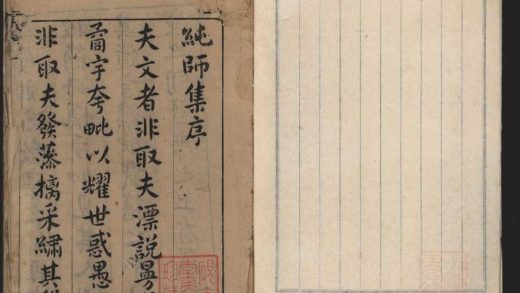 純師集序
夫文者非取夫漂說曼
矞宇夸毗以耀世惑愚
非取夫發藻摛采繡其